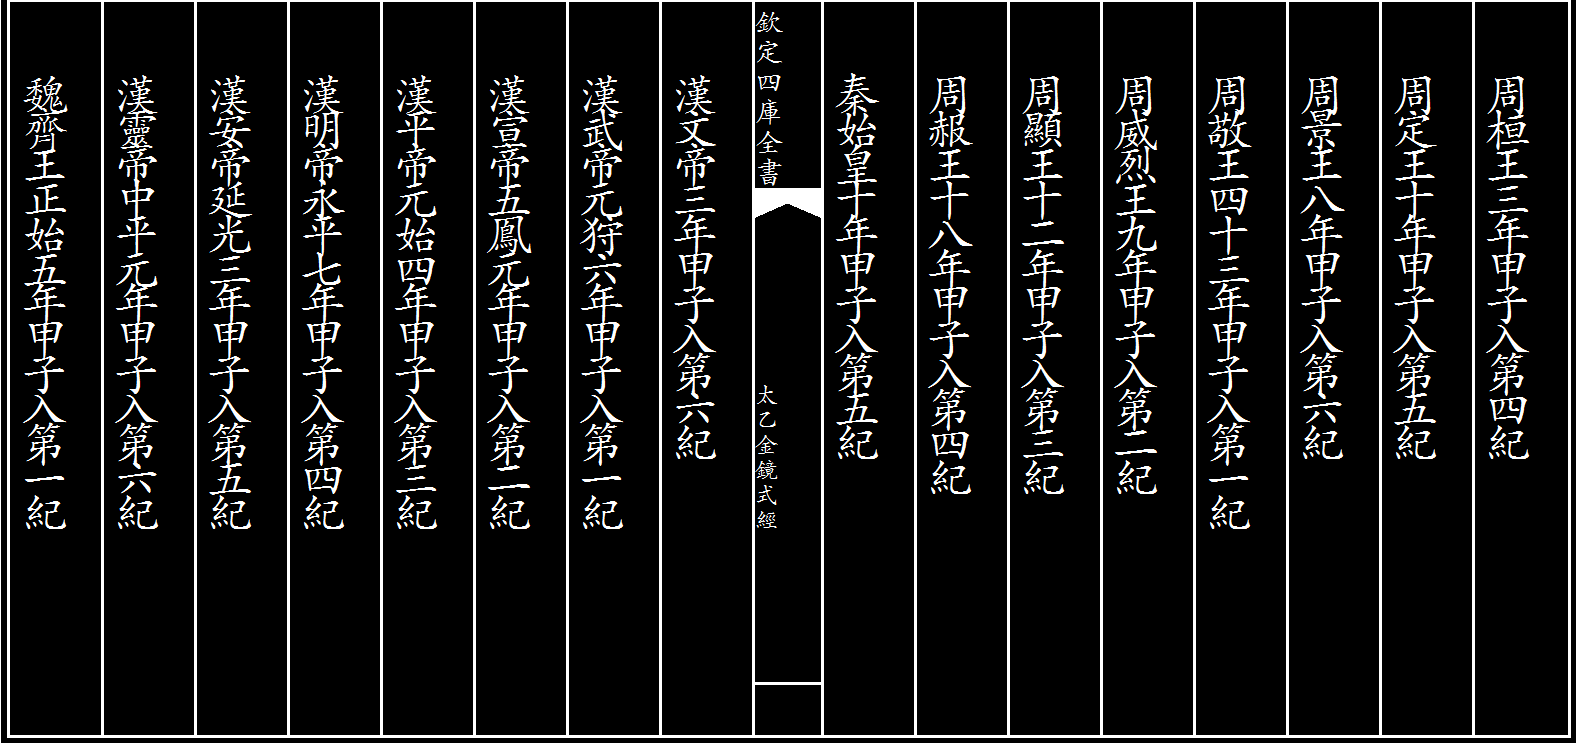 周桓王三年甲子入第四紀
周定王十年甲子入第五紀
周景王八年甲子入第六紀
周敬王四十三年甲子入第一紀
周威烈王九年甲子入第二紀
周顯王十二年甲子入第三紀
周赧王十八年甲子入第四紀
秦始皇十年甲子入第五紀
欽定四庫全書
太乙金鏡式經
漢文帝三年甲子入第六紀
漢武帝元狩六年甲子入第一紀
漢宣帝五鳳元年甲子入第二紀
漢平帝元始四年甲子入第三紀
漢明帝永平七年甲子入第四紀
漢安帝延光三年甲子入第五紀
漢靈帝中平元年甲子入第六紀
魏齊王正始五年甲子入第一紀